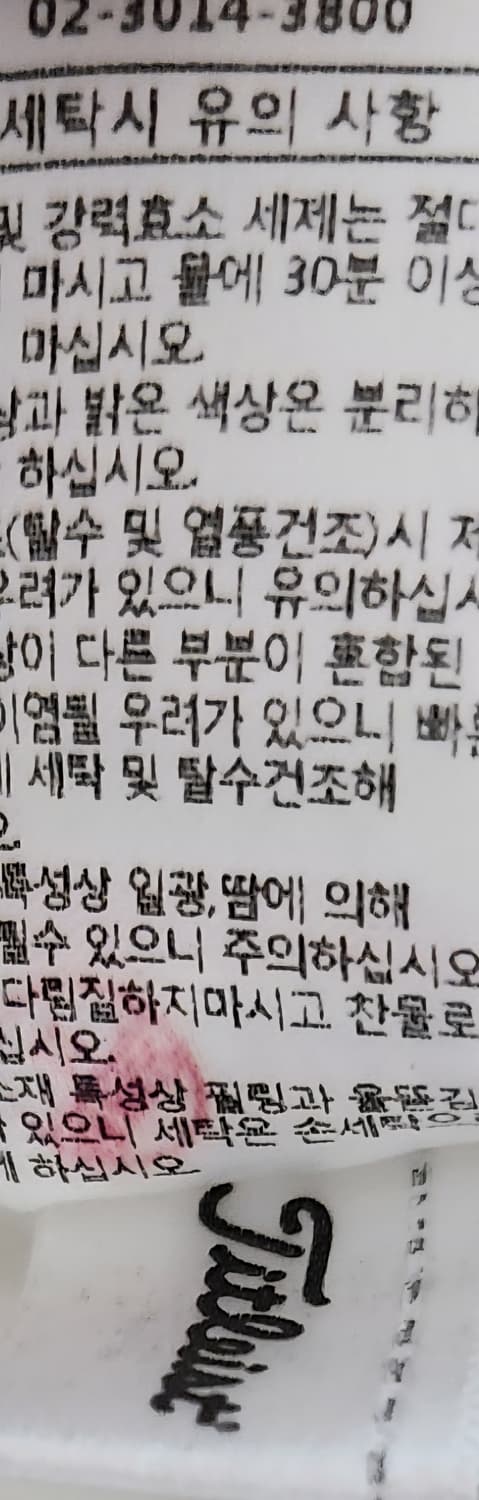 02-3014-3800
세탁시 유의 사항
및 강력효소 세제는 절대
마시고 물에 30분 이상
마십시오.
과 밝은 색상은 분리하
하십시오.
(탈수 및 열풍건조)시
우려가 있으니 유의하십시
상이 다른 부분이 혼합된
이염될 우려가 있으니 빠른
세탁 및 탈수건조해
오.
특성상 일광,땀에 의해
될수 있으니 주의하십시오
다림질하지마시고 찬물로
십시오.
소재 특성상 필링과 올뜯김
있으니 세탁은 손세탁으
하십시오
Titleist